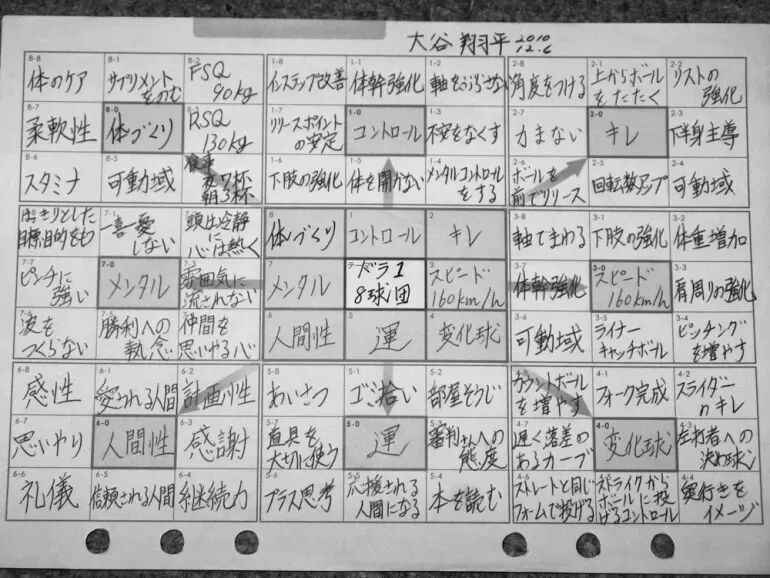 大谷 翔平 2010
12.6
8-8
体のケア
8-1
サプリメント
をのむ
8-2
FSQ
90kg
1-8
インステップ改善
1-1
体幹強化
1-2
軸をぶらさない
2-8
角度をつける
2-1
上からボール
をたたく
2-2
リストの
強化
8-7
柔軟性
8-0
体づくり
8-3
RSQ
130kg
1-7
リリースポイント
の安定
1-0
コントロール
1-3
不安をなくす
2-7
力まない
2-0
キレ
2-3
下半身主導
8-6
スタミナ
8-5
可動域
食事
夜7杯
朝3杯
1-6
下肢の強化
1-5
体を開かない
1-4
メンタルコントロール
をする
2-6
ボールを
前でリリース
2-5
回転数アップ
2-4
可動域
はっきりとした
目標、目的をもつ
7-1
一喜一憂
しない
頭は冷静に
心は熱く
8
体づくり
1
コントロール
2
キレ
3-8
軸でまわる
3-1
下肢の強化
3-2
体重増加
7-7
ピンチに
強い
7-0
メンタル
7-3
雰囲気に
流されない
7
メンタル
ドラ1
8球団
3
スピード
160km/h
3-7
体幹強化
3-0
スピード
160km/h
3-3
肩周りの強化
7-6
波を
つくらない
7-5
勝利への
執念
7-4
仲間を
思いやる心
6
人間性
5
運
4
変化球
3-6
可動域
3-5
ライナー
キャッチボール
3-4
ピッチング
を増やす
6-8
感性
6-1
愛される人間
6-2
計画性
5-8
あいさつ
5-1
ゴミ拾い
5-2
部屋そうじ
4-8
カウントボール
を増やす
4-1
フォーク完成
4-2
スライダー
のキレ
6-7
思いやり
6-0
人間性
6-3
感謝
5-7
道具を
大切に使う
5-0
運
5-3
審判さんへの
態度
4-7
遅く落差の
あるカーブ
4-0
変化球
4-3
左打者への
決め球
6-6
礼儀
6-5
信頼される人間
6-4
継続力
5-6
プラス思考
5-5
応援される
人間になる
5-4
本を読む
4-6
ストレートと同じ
フォームで投げる
4-5
ストライクから
ボールに投
げるコントロール
4-4
奥行きを
イメージ